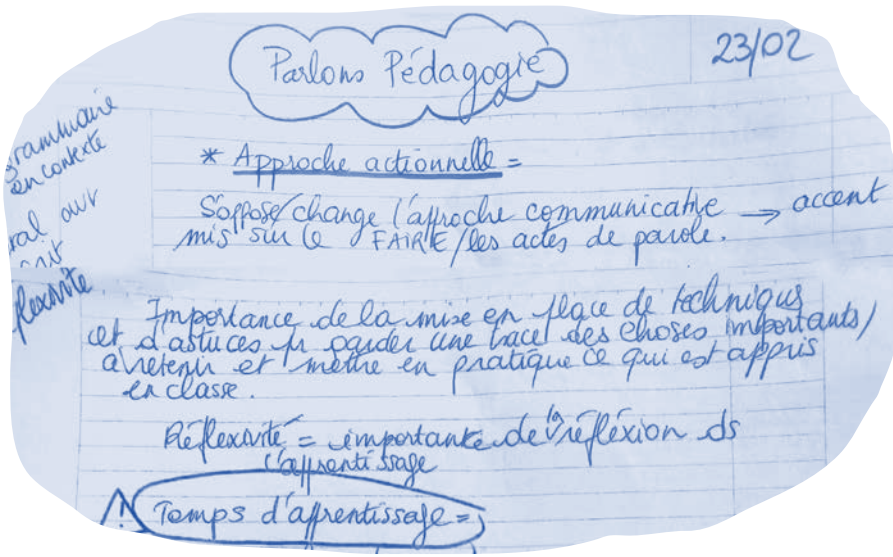 Parlons Pédagogie
23/02
grammaire
en contexte
* Approche actionnelle =
S'oppose/change l'approche communicative → accent
mis sur le FAIRE/les actes de parole.
Importance de la mise en place de techniques
et d'astuces pr garder une trace des choses importants/
à retenir et mettre en pratique ce qui est appris
en classe.
Réflexivité = importante de la réfléxion ds
l'apprentissage
⚠ Temps d'apprentissage =